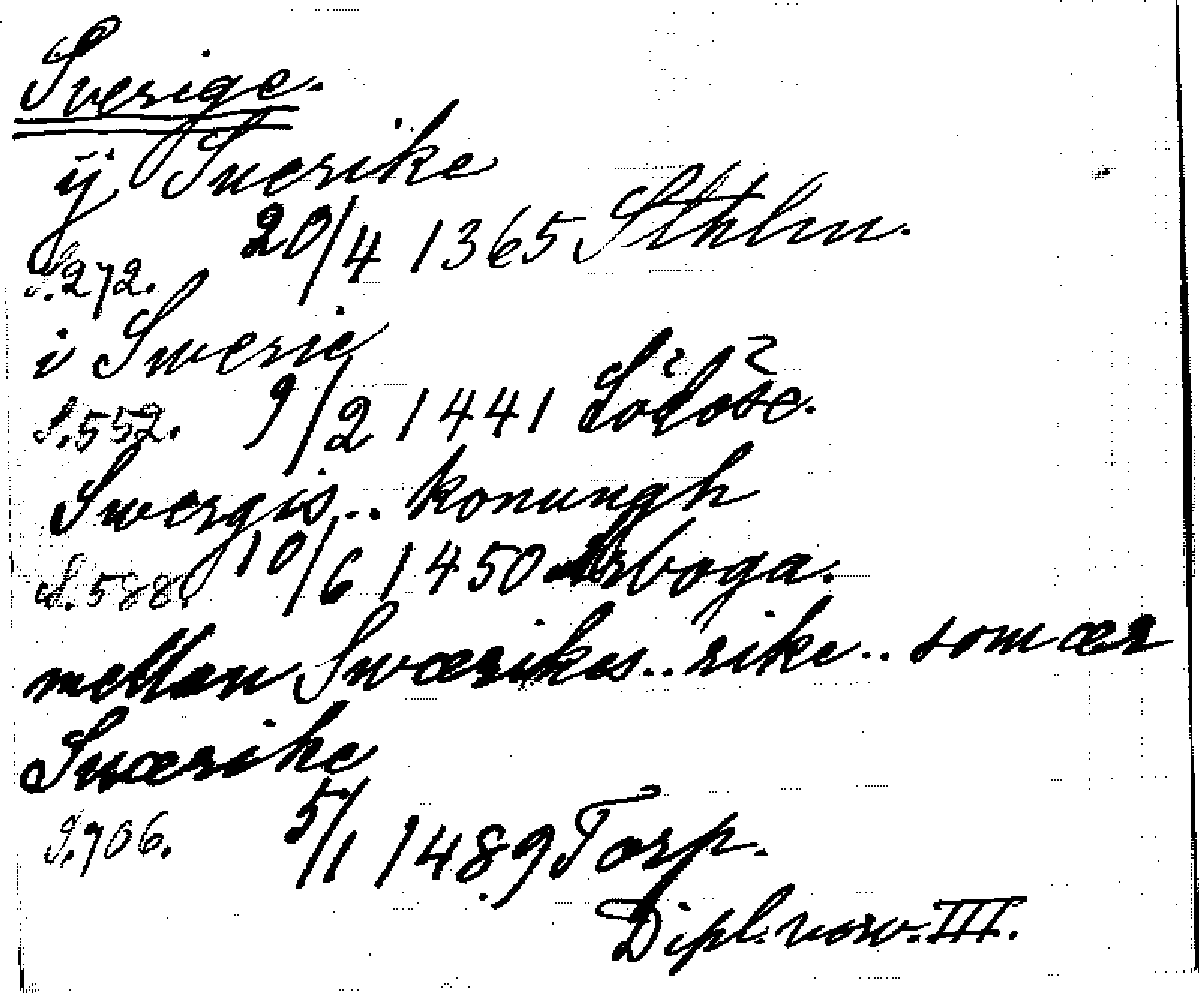 Sverige.
ij Suerike
S.272. 20/4 1365 Sthlm.
i Swerie
S.552. 9/2 1441 Lödöse.
Swergis.. konungh
S.588. 10/6 1450 Arboga.
mellan Swærikis.. rike.. som ær
Suærike
S.706. 5/1 1489 Torp.
Dipl. norv. III.